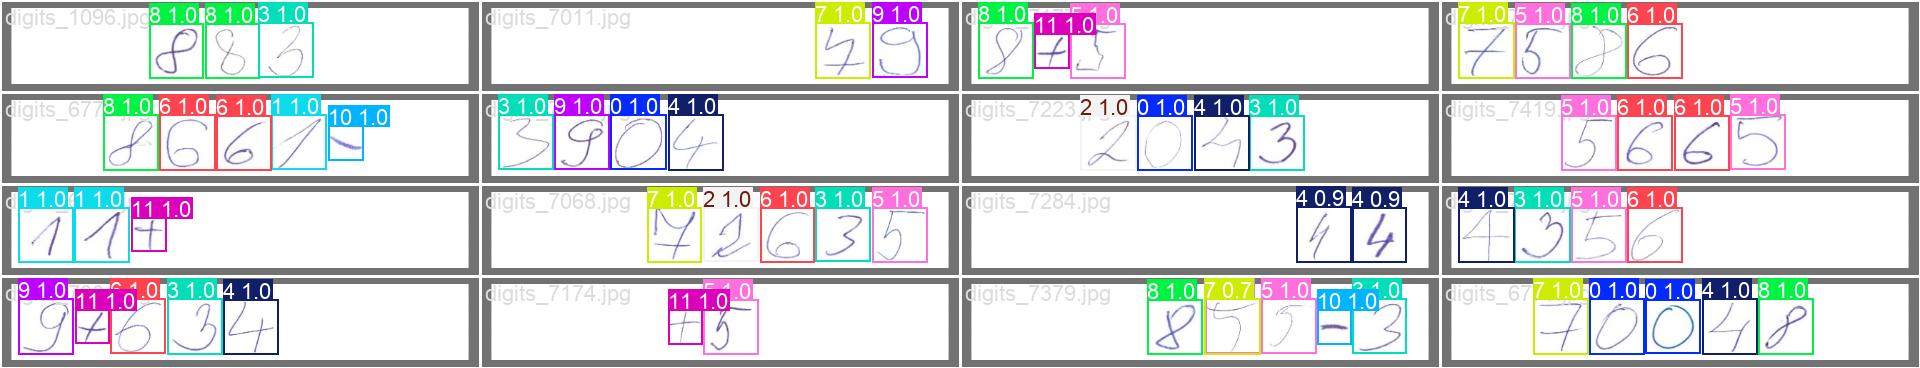 digits_1096.jpg 8 1.0 8 1.0 3 1.0
8 8 3
digits_7011.jpg 7 1.0 9 1.0
7 9
8 1.0 11 1.0 5 1.0
8 + 5
7 1.0 5 1.0 8 1.0 6 1.0
7 5 8 6
8 1.0 6 1.0 6 1.0 1 1.0 10 1.0
8 6 6 1 -
3 1.0 9 1.0 0 1.0 4 1.0
3 9 0 4
digits_7223 2 1.0 0 1.0 4 1.0 3 1.0
2 0 4 3
digits_7419 5 1.0 6 1.0 6 1.0 5 1.0
5 6 6 5
1 1.0 1 1.0 11 1.0
1 1 +
digits_7068.jpg 7 1.0 2 1.0 6 1.0 3 1.0 5 1.0
7 2 6 3 5
digits_7284.jpg 4 0.9 4 0.9
4 4
4 1.0 3 1.0 5 1.0 6 1.0
4 3 5 6
9 1.0 11 1.0 6 1.0 3 1.0 4 1.0
9 + 6 3 4
digits_7174.jpg 11 1.0 5 1.0
+ 5
digits_7379.jpg 8 1.0 7 0.7 5 1.0 10 1.0 3 1.0
8 5 5 - 3
7 1.0 0 1.0 0 1.0 4 1.0 8 1.0
7 0 0 4 8